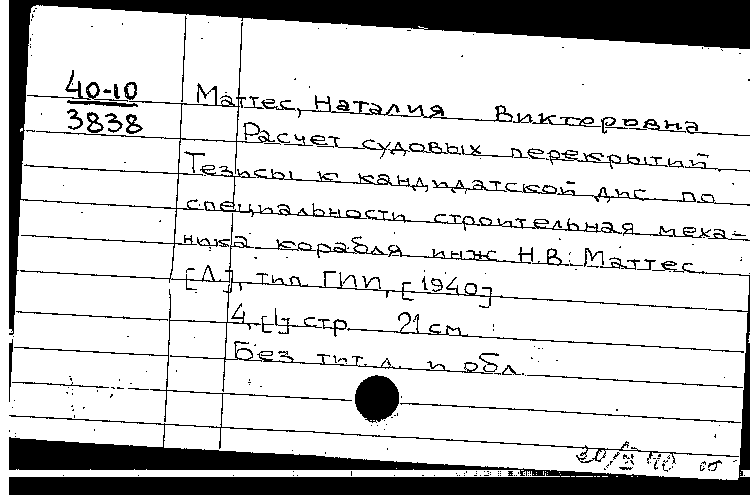 40-10
3838
Маттес, Наталия Викторовна
Расчет судовых перекрытий.
Тезисы к кандидатской дис. по
специальности строительная меха-
ника корабля инж. Н.В. Маттес.
[Л.], тип. ГИИ, [1940].
4, [1] стр. 21 см.
Без тит. л. и обл.